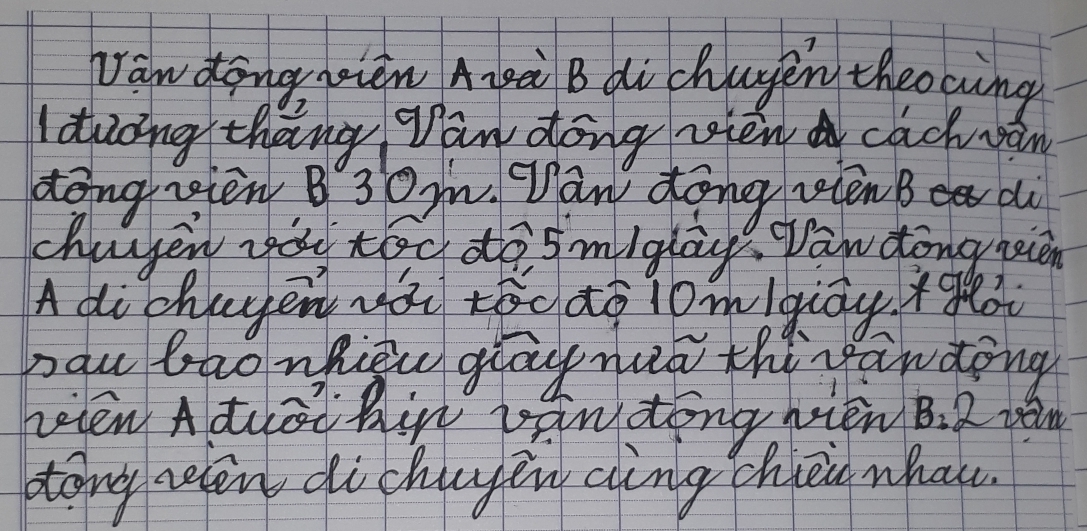 Vận động viên A và B di chuyển theo cùng
1 đường thẳng. Vận động viên A cách vận
động viên B 30m. Vận động viên B di
chuyển với tốc độ 5m/giây. Vận động viên
A di chuyển với tốc độ 10m/giây. Hỏi
sau bao nhiêu giây nữa thì vận động
viên A đuổi kịp vận động viên B. 2 vận
động viên di chuyển cùng chiều nhau.